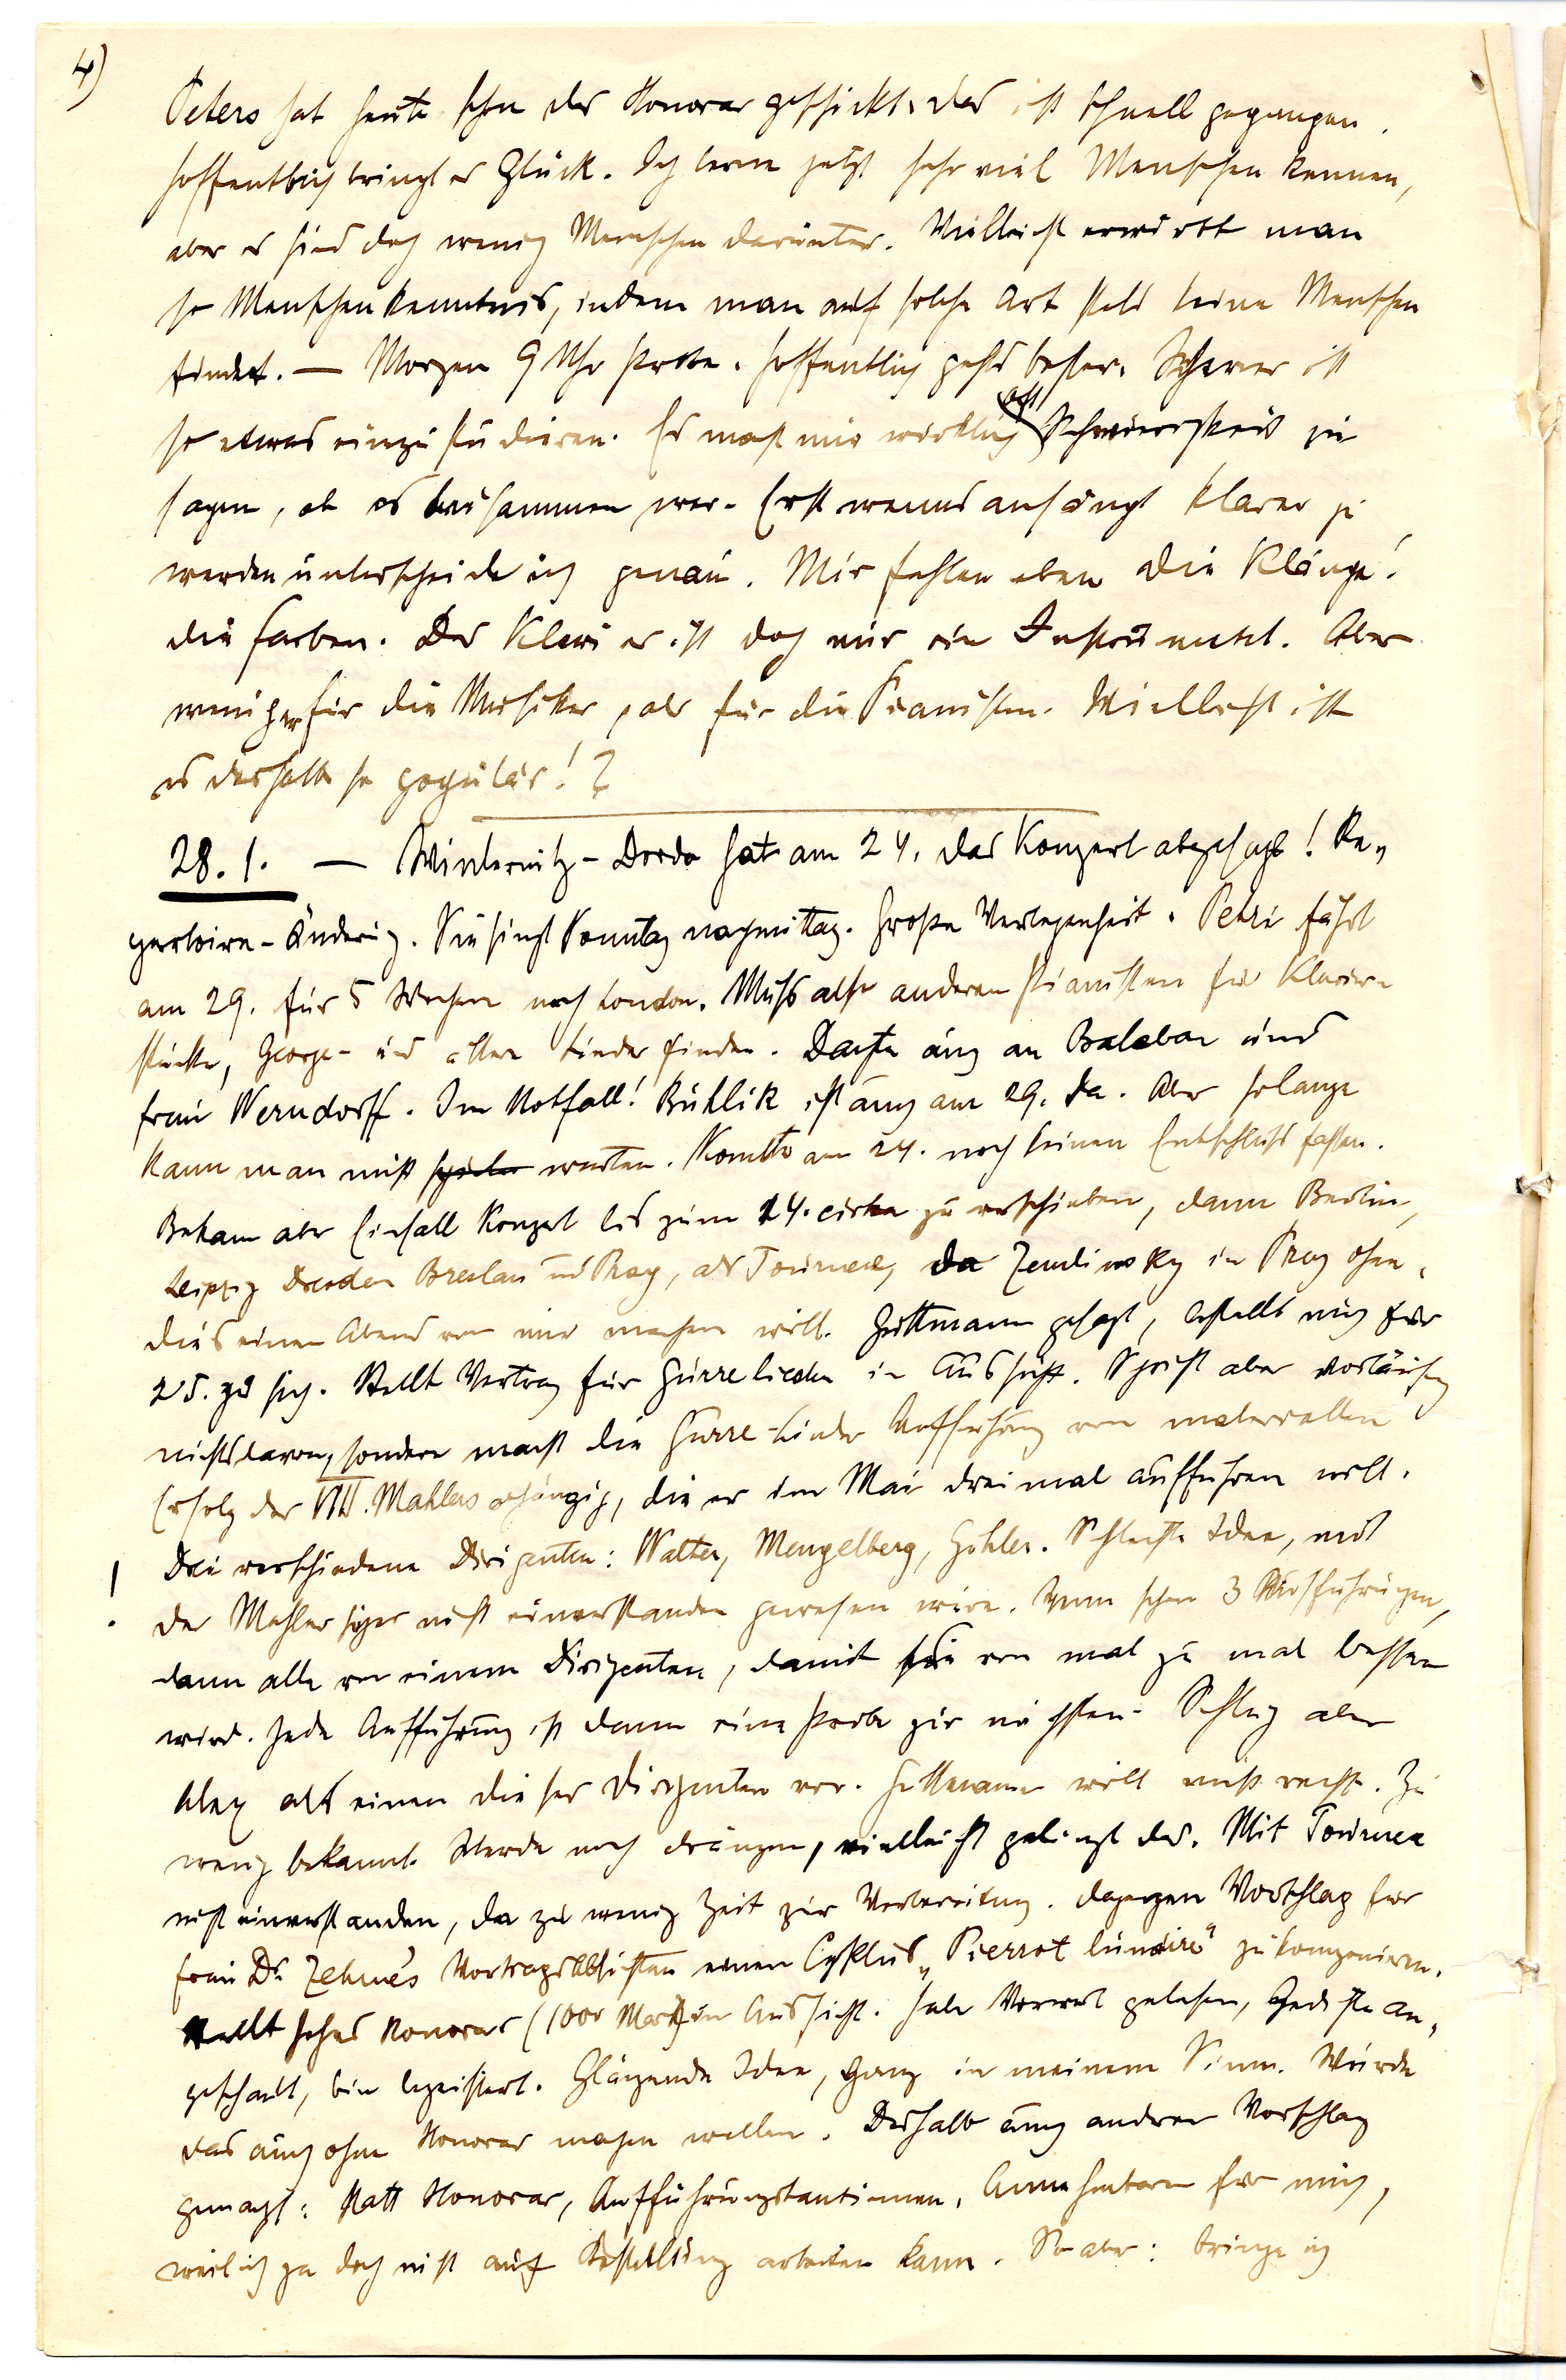 4)
Peters hat heute schon das Honorar geschickt. das ist schnell gegangen.
hoffentlich bringt es Glück. Ich lerne jetzt sehr viel Menschen kennen,
aber es sind doch wenig Menschen darunter. Vielleicht erwirbt man
so Menschenkenntnis, indem man auf solche Art stets keine Menschen
findet. — Morgen 9 Uhr Probe. hoffentlich gehts besser. Schwer ist
so etwas einzustudieren. Es macht mir wirklich oft Schwierigkeit zu
sagen, ob es beisammen war. Erst wenns anfängt klarer zu
werden unterscheide ich genau. Mir fehlen eben die Klänge!
die Farben. Das Klavier ist doch nur ein Instrument. Aber
weniger für die Musiker, als für die Pianisten. Vielleicht ist
es deshalb so populär!?
28. I. — Winternitz-Dorda hat am 24. das Konzert abgesagt! Re-
pertoire-Änderung. Sie singt Sonntag nachmittag. Große Verlegenheit. Petri fährt
am 29. für 5 Wochen nach London. Muss also anderen Pianisten für Klavier-
stücke, George- und ältere Lieder finden. Dachte auch an Balaban und
Frau Werndorff. Im Notfall! Buhlik ist auch am 29. da. Aber solange
kann man nicht spielen warten. Konnte am 24. noch keinen Entschluss fassen.
Bekam aber Einfall Konzert bis zum 24. cirka zu verschieben, dann Berlin,
Leipzig Dresden Breslau und Prag, als Tournee, da Zemlinsky in Prag ohne-
dies einen Abend von mir machen will. Guttmann gesagt, bestellt mich für
25. zu sich. Stellt Vertrag für Gurrelieder in Aussicht. Spricht aber vorläufig
nichts davon, sondern macht die Gurre-Lieder Aufführung vom materiellen
Erfolg der VIII. Mahlers abhängig, die er im Mai dreimal aufführen will.
! Drei verschiedene Dirigenten: Walter, Mengelberg, Göhler. Schlechte Idee, mit
der Mahler sicher nicht einverstanden gewesen wäre. Wenn schon 3 Aufführungen,
dann alle von einem Dirigenten, damit sie von mal zu mal besser
wird. Jede Aufführung ist dann eine Probe zur nächsten. Schlug aber
Alex als einen dieser Dirigenten vor. Guttmann will nicht recht. Zu
wenig bekannt. Werde noch drängen, vielleicht gelingt das. Mit Tournee
nicht einverstanden, da zu wenig Zeit zur Vorbereitung. dagegen Vorschlag für
Frau Dr. Zehme's Vortragsabsichten einen Cyklus „Pierrot lunaire“ zu komponieren.
Stellt hohes Honorar (1000 Mark) in Aussicht. Habe Vorwort gelesen, Gedichte an-
geschaut, bin begeistert. Glänzende Idee, ganz in meinem Sinn. Würde
das auch ohne Honorar machen wollen. Deshalb auch anderen Vorschlag
gemacht: statt Honorar, Aufführungstantiemen. Annehmbarer für mich,
weil ich ja doch nicht auf Bestellung arbeiten kann. So aber: bringe ich